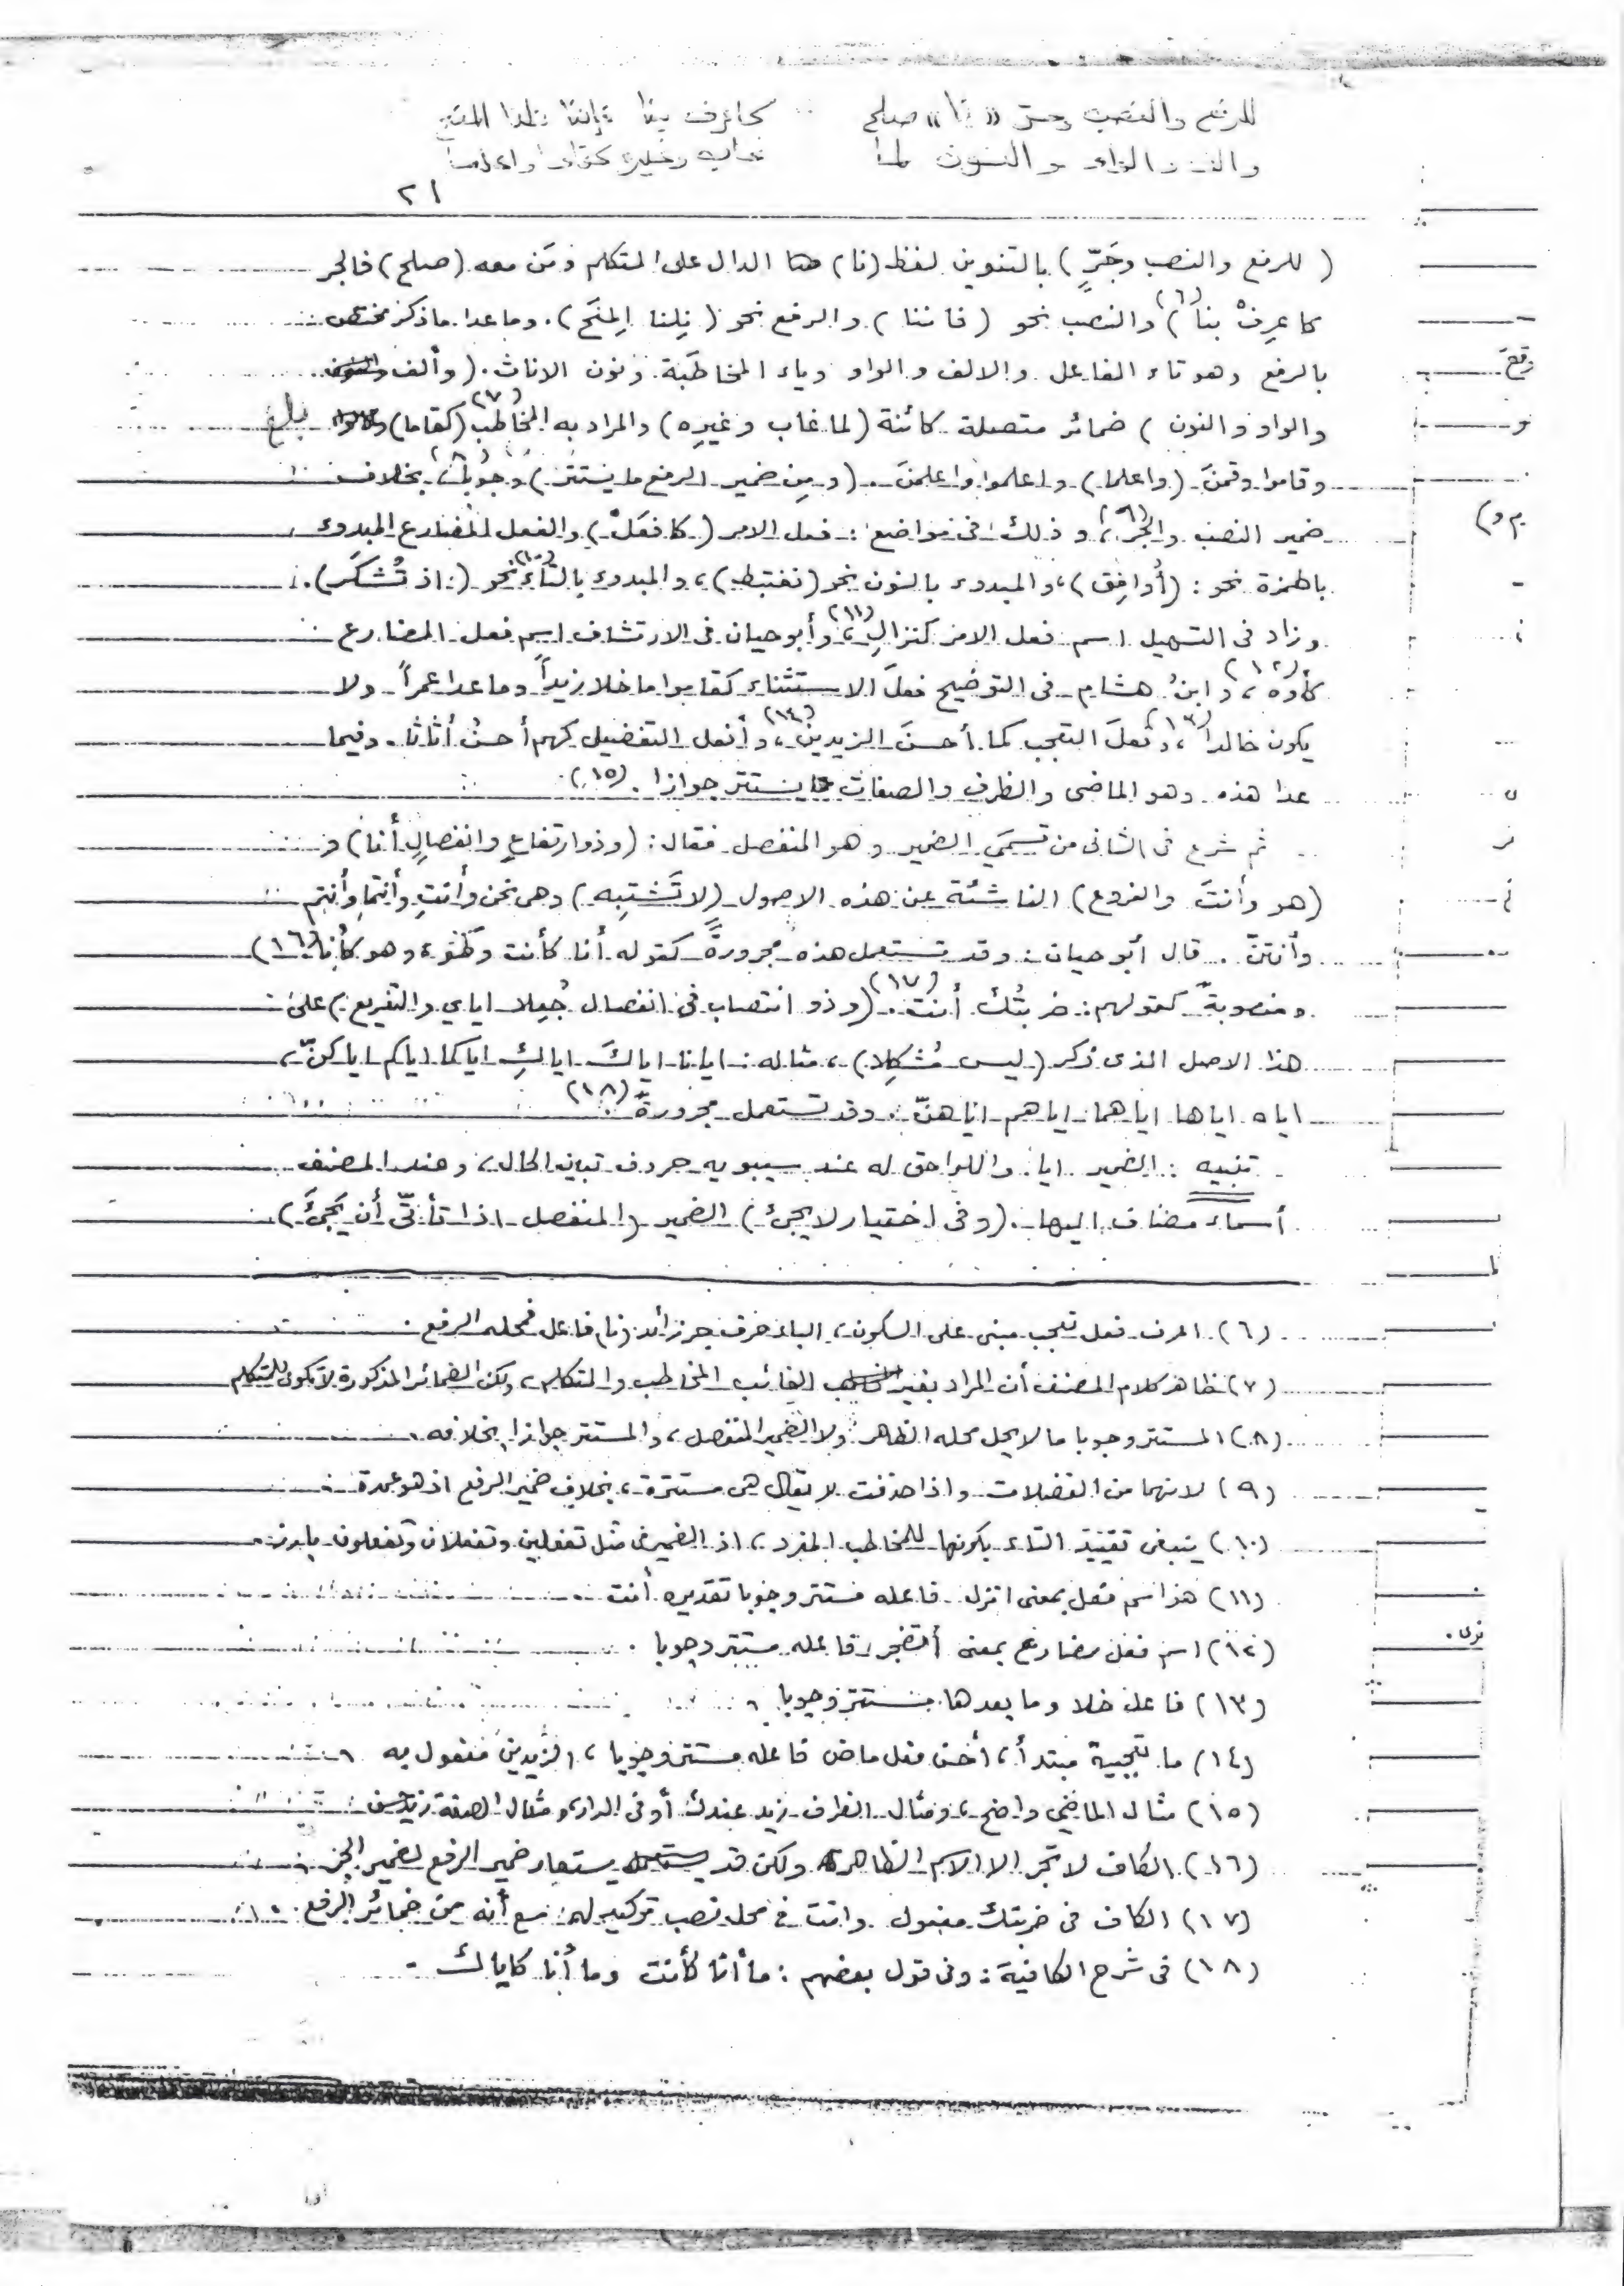 للرفع والنصب وجرّ «نا» صلح كاعرف بنا فإننا نلنا المنح
وألف والواو والنون لما غاب وغيره كقاما واعلما
٢١
( للرفع والنصب وجَرٍّ ) بالتنوين لفظ (نا) الدال على المتكلم ومَن معه (صلح) فالجر
كاعرِفْ بنا (٦) والنصب نحو (فاننا) والرفع نحو (نِلنا المِنَح). وماعدا ماذكر مختص
بالرفع وهو تاء الفاعل والالف والواو وياء المخاطَبة ونون الاناث. (وألف
والواو والنون) ضمائر متصلة كائنة (لما غاب وغيرِه) والمراد به المخاطب (٧) (كقاما)
وقاموا وقمنَ (واعلما) واعلموا واعلمنَ. (ومِن ضمير الرفع ما يستتر) وجوبا (٨) بخلاف
ضمير النصب والجر (٩)، وذلك في مواضع: فعل الامر (كافعَلْ) والفعل المضارع المبدوء
بالهمزة نحو: (أُوافِق)، والمبدوء بالنون نحو (نغتبط)، والمبدوء بالتاء (١٠) نحو (اذ تُشكَر).
وزاد في التسهيل اسم فعل الامر كنزالِ (١١)، وأبوحيان في الارتشاف اسم فعل المضارع
كأوه (١٢)، وابنُ هشام في التوضيح فعلَ الاستثناء كقاموا ما خلا زيداً وما عدا عمراً ولا
يكون خالدا (١٣)، وفعلَ التعجب كما أحسنَ الزيدين (١٤)، وأفعل التفضيل كهم أحسنُ أثاثا. وفيما
عدا هذه وهو الماضى والظرف والصفات يستتر جوازا. (١٥)
ثم شرع في الثاني من قسمَي الضمير وهو المنفصل فقال: (وذو ارتفاعٍ وانفصالٍ أنا) و
(هو وأنتَ والفروع) الناشئة عن هذه الاصول (لا تَشتبِه) وهى نحن وأنتِ وأنتما وأنتم
وأنتنّ. قال أبوحيان: وقد تستعمل هذه مجرورةً كقوله أنا كأنت وكهُو، وهو كأنا (١٦)
ومنصوبةً كقولهم: ضربتُك أنت (١٧). (وذو انتصاب في انفصال جُعِلا اياي والتفريع) على
هذا الاصل الذى ذكر (ليس مُشكِلا)، مثاله: ايانا اياكَ اياكِ اياكما اياكم اياكنّ،
اياه اياها اياهما اياهم اياهنّ. وقد تستعمل مجرورةً (١٨)
تنبيه: الضمير ايا. واللواحق له عند سيبويه حروف تبيان الحال، وعند المصنف
أسماء مضاف اليها. (وفى اختيار لا يجئ) الضمير (المنفصل اذا تأتّى أن يَجئَ)
(٦) اعرف فعل تعجب مبنى على السكون، الباء حرف جر زائد (نا) فاعل فمحله الرفع.
(٧) ظاهر كلام المصنف أن المراد بغير الغائب المخاطب والمتكلم، ولكن الضمائر المذكورة لا تكون للمتكلم
(٨) المستتر وجوبا ما لا يحل محله الظاهر ولا الضمير المنفصل، والمستتر جوازا بخلافه.
(٩) لانهما من الفضلات واذا حذفت لا يقال هى مستترة، بخلاف ضمير الرفع اذ هو عمدة
(١٠) ينبغى تقييد التاء بكونها للمخاطب المفرد، اذ الضمير فى مثل تفعلين وتفعلان وتفعلون بارز.
(١١) هذا اسم فعل بمعنى انزل فاعله مستتر وجوبا تقديره أنت
(١٢) اسم فعل مضارع بمعنى أتضجر، فاعله مستتر وجوبا.
(١٣) فاعل خلا وما بعدها مستتر وجوبا
(١٤) ما تعجبية مبتدأ، أحسن فعل ماض فاعله مستتر وجوبا، الزيدين مفعول به
(١٥) مثال الماضي واضح، ومثال الظرف زيد عندك أو في الدار، ومثال الصفة زيد حسن
(١٦) الكاف لا تجر الا الاسم الظاهر ولكن قد يستعار ضمير الرفع لضمير الجر
(١٧) الكاف فى ضربتك مفعول وانت في محل نصب توكيد له، مع أنه من ضمائر الرفع.
(١٨) فى شرح الكافية: وفى قول بعضهم: ما أنا كأنت وما أنا كاياك